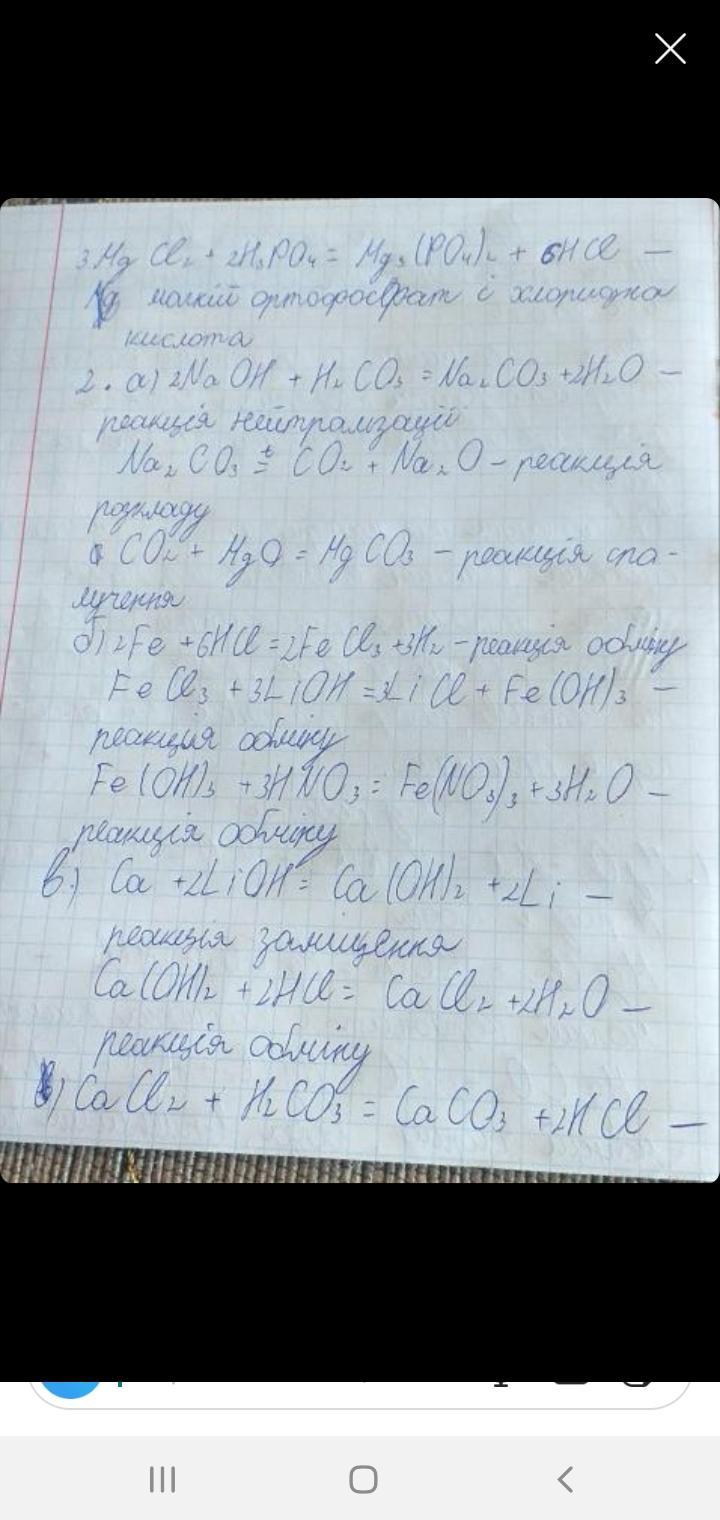 3MgCl₂ + 2H₃PO₄ = Mg₃(PO₄)₂ + 6HCl —
магній ортофосфат і хлоридна
кислота
2. а) 2NaOH + H₂CO₃ = Na₂CO₃ + 2H₂O —
реакція нейтралізації
Na₂CO₃ =ᵗ CO₂ + Na₂O – реакція
розкладу
CO₂ + MgO = MgCO₃ – реакція спо-
лучення
б) 2Fe + 6HCl = 2FeCl₃ + 3H₂ – реакція обміну
FeCl₃ + 3LiOH = 3LiCl + Fe(OH)₃ —
реакция обміну
Fe(OH)₃ + 3HNO₃ = Fe(NO₃)₃ + 3H₂O —
реакція обміну
в) Ca + 2LiOH = Ca(OH)₂ + 2Li —
реакція заміщення
Ca(OH)₂ + 2HCl = CaCl₂ + 2H₂O —
реакція обміну
CaCl₂ + H₂CO₃ = CaCO₃ + 2HCl —